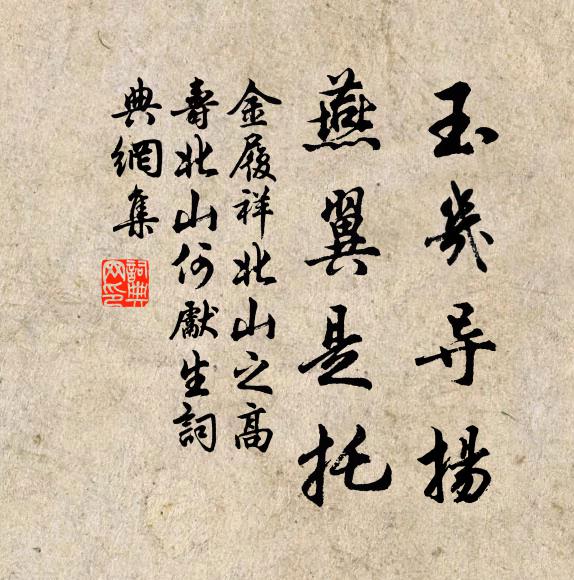 玉几导揚
燕翼是托
金履祥北山之高
壽北山何獻生詞
典網集
詞典网印